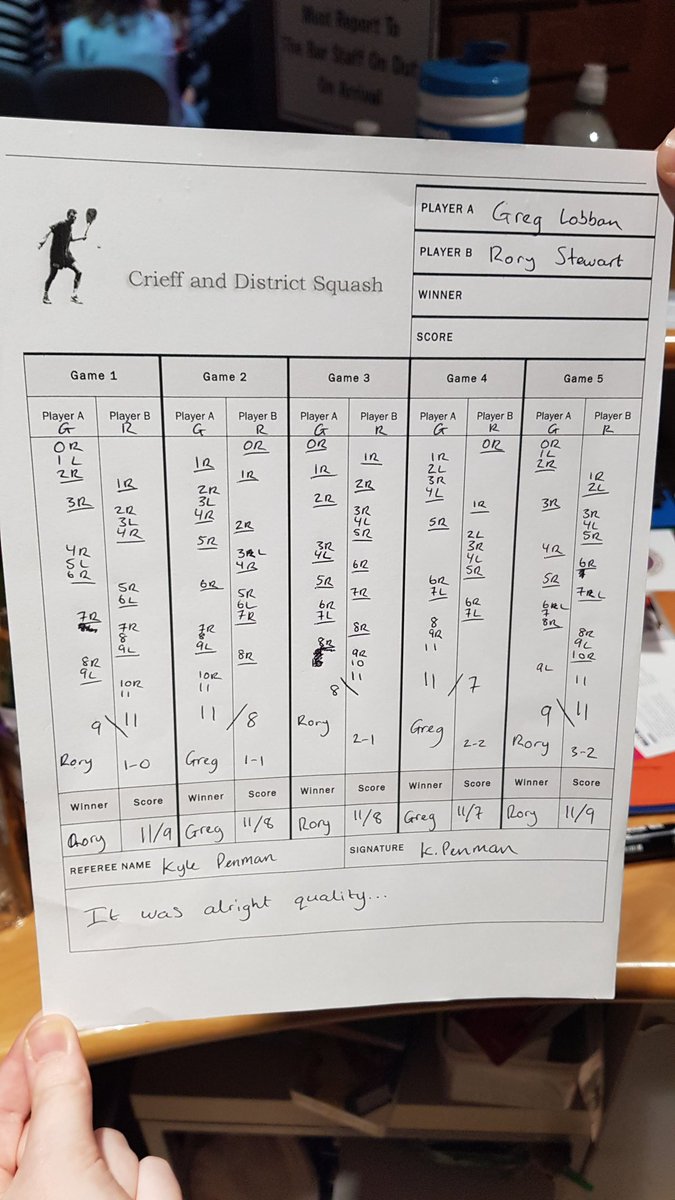 Must Report To
The Bar Staff On
On Arrival
PLAYER A Greg Lobban
PLAYER B Rory Stewart
WINNER
SCORE
Crieff and District Squash
Game 1 Game 2 Game 3 Game 4 Game 5
Player A Player B Player A Player B Player A Player B Player A Player B Player A Player B
G R G R G R G R G R
0R
1L
2R
1R
3R
2R
3L
4R
4R
5L
6R
5R
6L
7R
7R
8
9L
8R
9L
10R
11
9 \ 11
Rory 1-0
0R
1R
1R
2R
3L
4R
2R
5R
3L
4R
6R
5R
6L
7R
7R
8
9L
8R
10R
11
11 / 8
Greg 1-1
0R
1R
1R
2R
2R
3R
4L
5R
3R
4L
6R
5R
7R
6R
7L
8R
8R
9R
10
11
8 \
Rory 2-1
0R
1R
2L
3R
4L
1R
5R
2L
3R
4L
5R
6R
7L
6R
7L
8
9R
11
11 / 7
Greg 2-2
0R
1L
2R
1R
2L
3R
3R
4L
5R
4R
6R
5R
7RL
6RL
7L
8R
8R
9L
10R
9L
11
9 \ 11
Rory 3-2
Winner Score Winner Score Winner Score Winner Score Winner Score
Rory 11/9 Greg 11/8 Rory 11/8 Greg 11/7 Rory 11/9
REFEREE NAME Kyle Penman SIGNATURE K. Penman
It was alright quality...